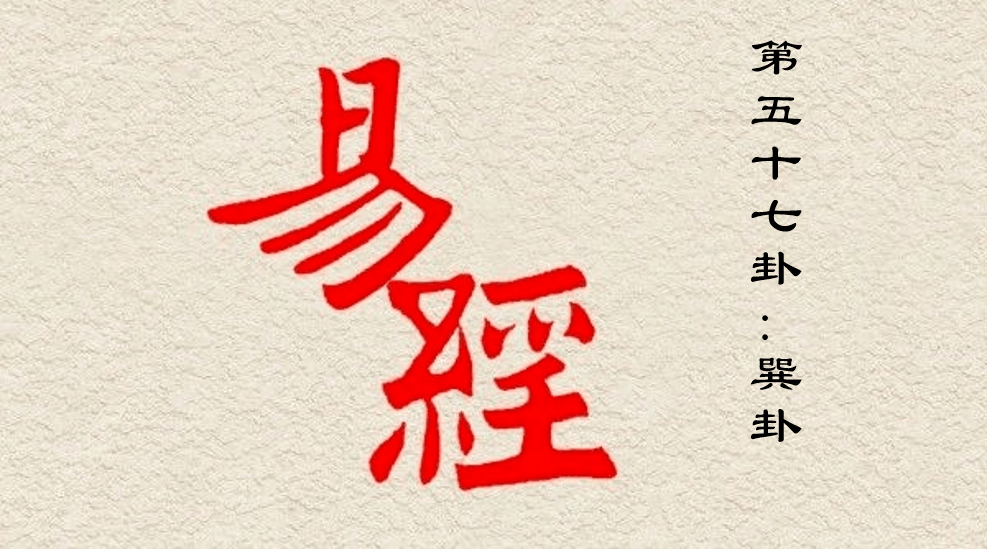 易經
第五十七卦：巽卦